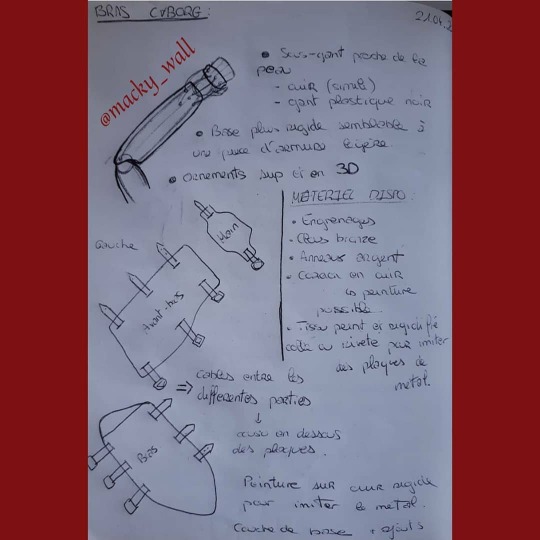 BRAS CYBORG :
21.04.2
@macky_wall
• Sous-gant proche de la
peau
- cuir (simili)
- gant plastique noir
• Base plus rigide semblable à
une pièce d'armure légère
• ornements sup et en 3D
MATERIEL DISPO :
• Engrenages
• Clous bronze
• Anneaux argent
• en cuir
↳ peinture
possible.
• Tissu peint et rigidifié
collé ou riveté pour imiter
des plaques de
metal.
Gauche
Main
Avant-bras
⇒ Cables entre les
differentes parties
↓
aussi en dessous
des plaques.
Bras
Peinture sur cuir rigide
pour imiter le metal.
Couche de base + ajouts